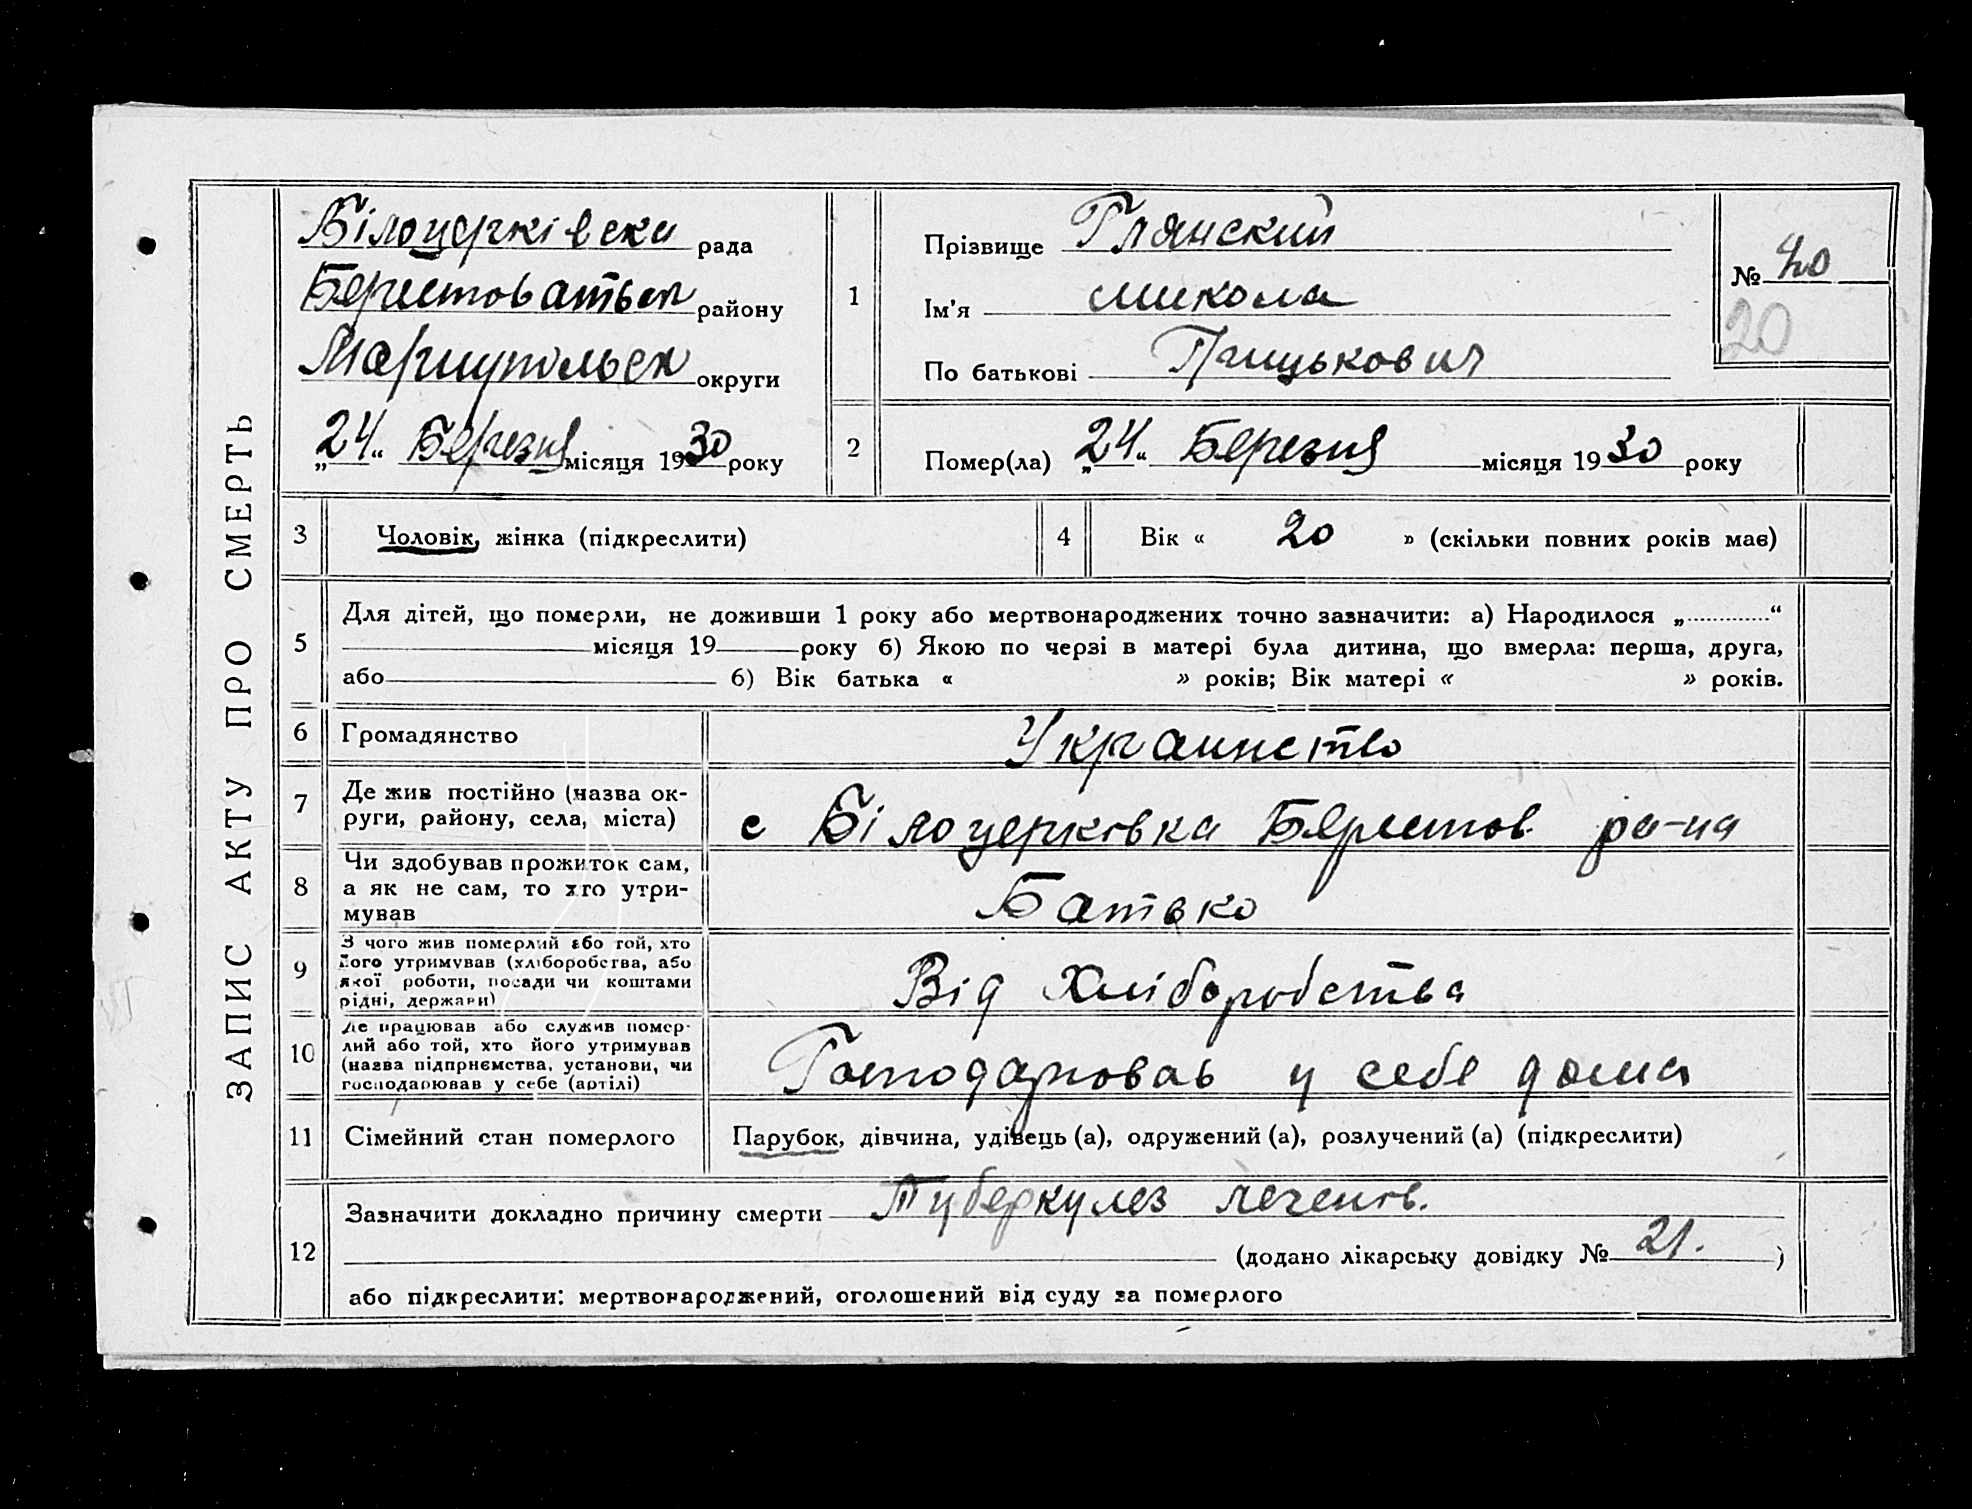 ЗАПИС АКТУ ПРО СМЕРТЬ
Білоцерківска рада
Берестоватськ району
Маріупольск округи
„24“ Березня місяця 1930 року
1
Прізвище Глянский
Ім'я Микола
По батькові Грицькович
№ 20
20
2
Помер(ла) „24“ Березня місяця 1930 року
3
Чоловік, жінка (підкреслити)
4
Вік « 20 » (скільки повних років має)
5
Для дітей, що померли, не доживши 1 року або мертвонароджених точно зазначити: а) Народилося „.............“
місяця 19 року б) Якою по черзі в матері була дитина, що вмерла: перша, друга,
або б) Вік батька « » років; Вік матері « » років.
6
Громадянство Украинство
7
Де жив постійно (назва ок-
руги, району, села, міста)
с Білоцерковка Берестов. ра-на
8
Чи здобував прожиток сам,
а як не сам, то хто утри-
мував
Батько
9
З чого жив померлий або той, хто
його утримував (хліборобства, або
якої роботи, посади чи коштами
рідні, держави)
Від Хліборобства
10
Де працював або служив помер-
лий або той, хто його утримував
(назва підприємства, установи, чи
господарював у себе (артілі)
Господарював у себе дома
11
Сімейний стан померлого
Парубок, дівчина, удівець (а), одружений (а), розлучений (а) (підкреслити)
12
Зазначити докладно причину смерти Туберкулез легенів.
(додано лікарську довідку № 21. )
або підкреслити: мертвонароджений, оголошений від суду за померлого